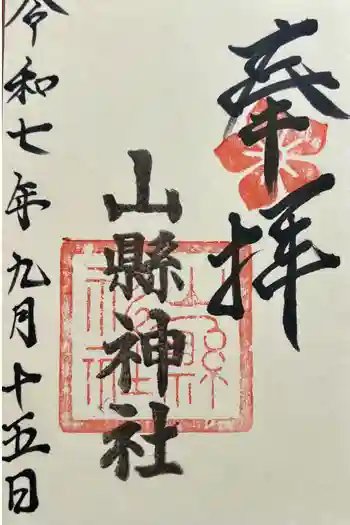 奉拝
山縣神社
山縣神社
令和七年九月十五日